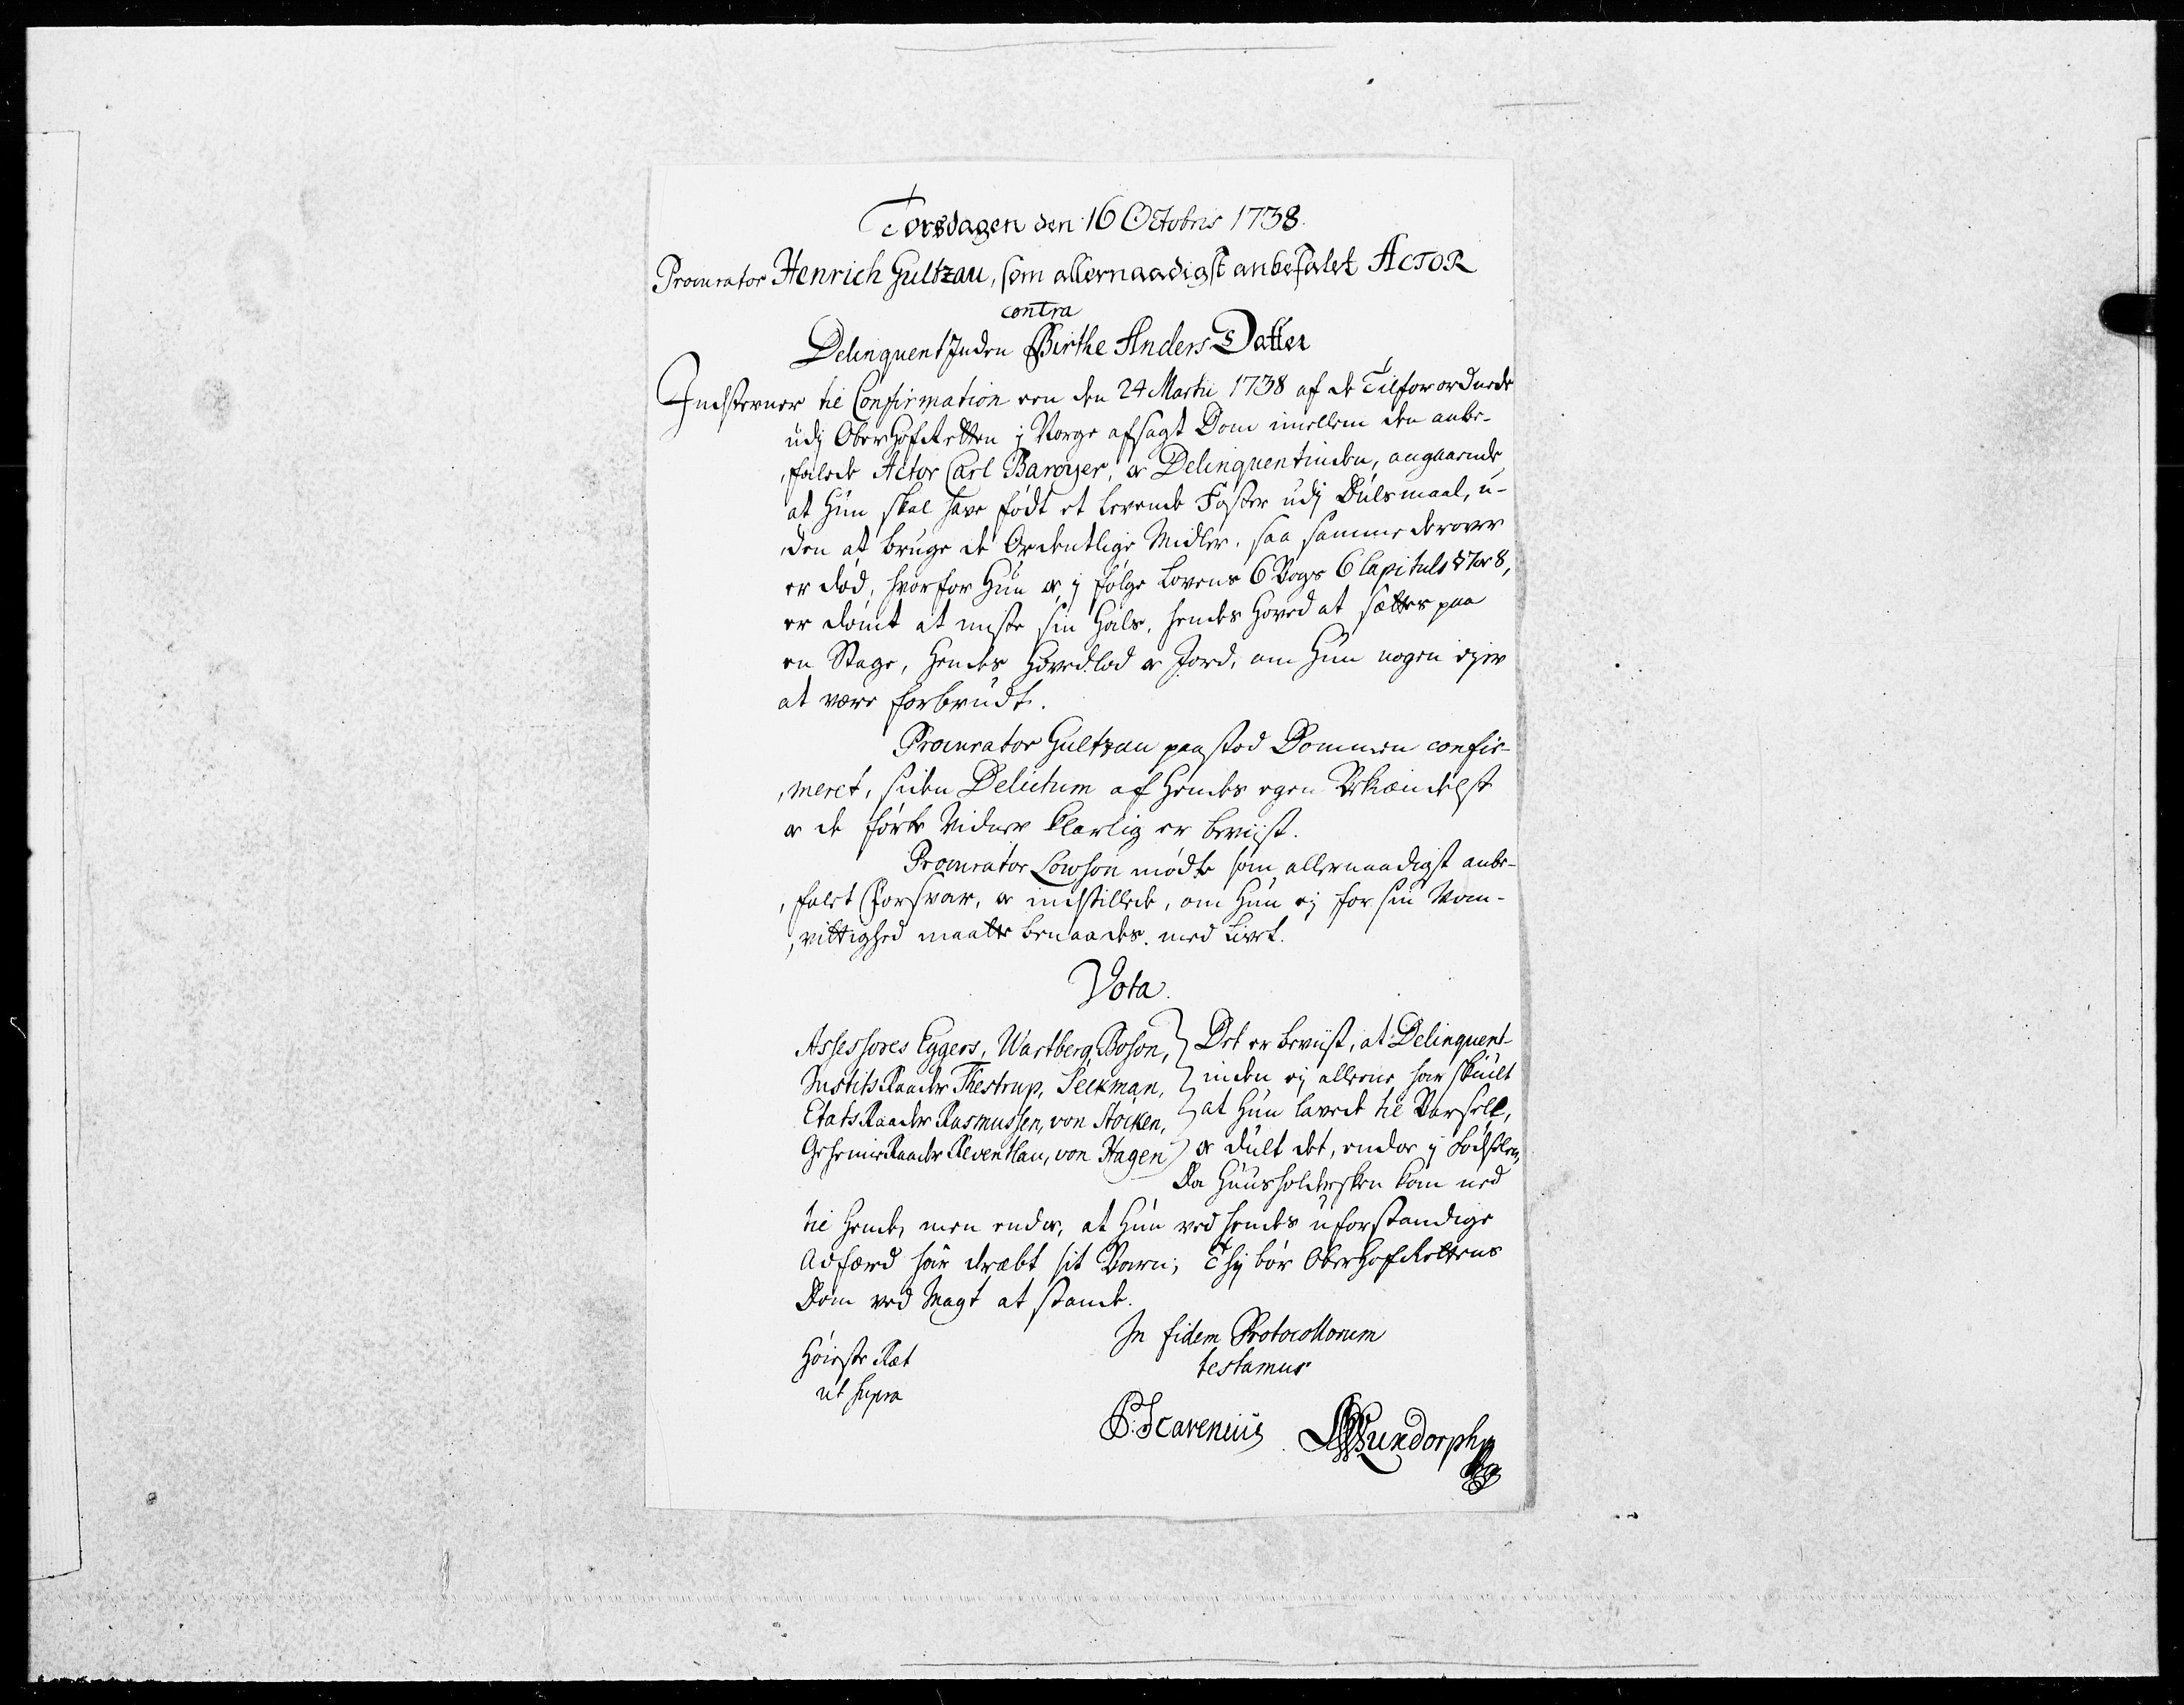 Torsdagen den 16 Octobris 1738.
Procurator Henrich Gultzau, som allernaadigst anbefalet ACTOR
contra
Delinquentinden Birthe Anders Datter
Indstevner til Confirmation een den 24 Martii 1738 af de Tilforordnede
udj OberHofRetten j Norge afsagt Dom imellem den anbe-
falede Actor Carl Barøyer, og Delinquentinden, angaaende
at Hun skal have født et levende Foster udj Dulsmaal, u-
den at bruge de Ordentlige Midler, saa samme derover
er død, hvorfor Hun er, j følge Lovens 6 Bogs 6 Capituls § 7 og 8,
er dømt at miste sin Hals, hendes Hoved at sættes paa
en Stage, Hendes Hovedlod og Jord, om Hun nogen ejer
at være forbrudt.
Procurator Gultzau paastod Dommen confir-
meret, siden Delictum af Hendes egen Bekiændelse
og de førte Vidner klarlig er beviist.
Procurator Lowson mødte som allernaadigst anbe-
falet Forsvar, og indstillede, om Hun ej for sin Wan-
vittighed maatte benaades med Livet.
Vota.
Assessores Eggers, Wartberg, Boson, Det er beviist, at Delinquent-
Justits Raader Thestrup, Seckman, inden ej alleene har skiult
Etats Raader Rasmussen, von Stöcken, at Hun lavede til Barsell,
Geheime Raader Reventlau, von Hagen og dult det, endog j Fødselen,
Da Huusholdersken kom ned
til Hende, men endog, at Hun ved hendes uforstandige
Adfærd har dræbt sit Barn; Thj bør OberHofRettens
Dom ved Magt at stande.
In fidem Protocollorum
Høieste Ret testamus
ut supra
P: Scavenius Luxdorph